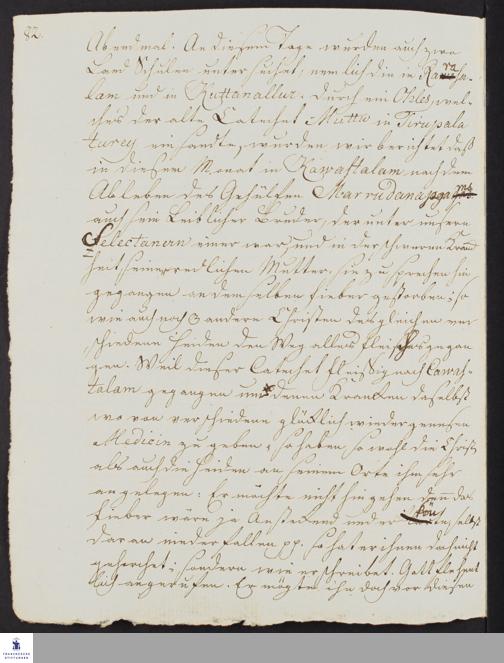 82.
Abendmal. An diesem Tage wurden auch zwo
Land Schulen untersuchet, nemlich die in
lam und in Kuttanallur. Durch ein Ohles, wel-
ches der alte Catechet Muttu in Tirupala
turey einsandte, wurden wir berichtet daß
in diesem Monat in Kawastalam nach dem
Ableben des Gehülfen Marrudanaja
auch sein Leiblicher Bruder, der unter unsern
Selectanern einer war und in der schweren Kranck
heit seiner redlichen Mutter, sie zu sprechen hin
gegangen an demselben Fieber gestorben: so
wie auch noch 3 andere Christen desgleichen ver
schiedene Heiden den Weg alles Fleisches gegan
gen. Weil dieser Catechet fleissig nach Cawas-
talam gegangen und denen Krancken daselbst
wovon verschiedene glücklich wieder genesen
Medicin zu geben, so haben so wohl die Christen
als auch die Heiden an seinem Orte ihm sehr
angelegen: Er möchte nicht hingehen denn das
Fieber wäre ja ansteckend und er könte selbst
daran niederfallen pp. so hat er ihnen doch nicht
gehorchet; sondern wie er schreibet Gott flehent
lich angerufen. Er mögte ihn doch vor diesem
FRANCKESCHE
STIFTUNGEN